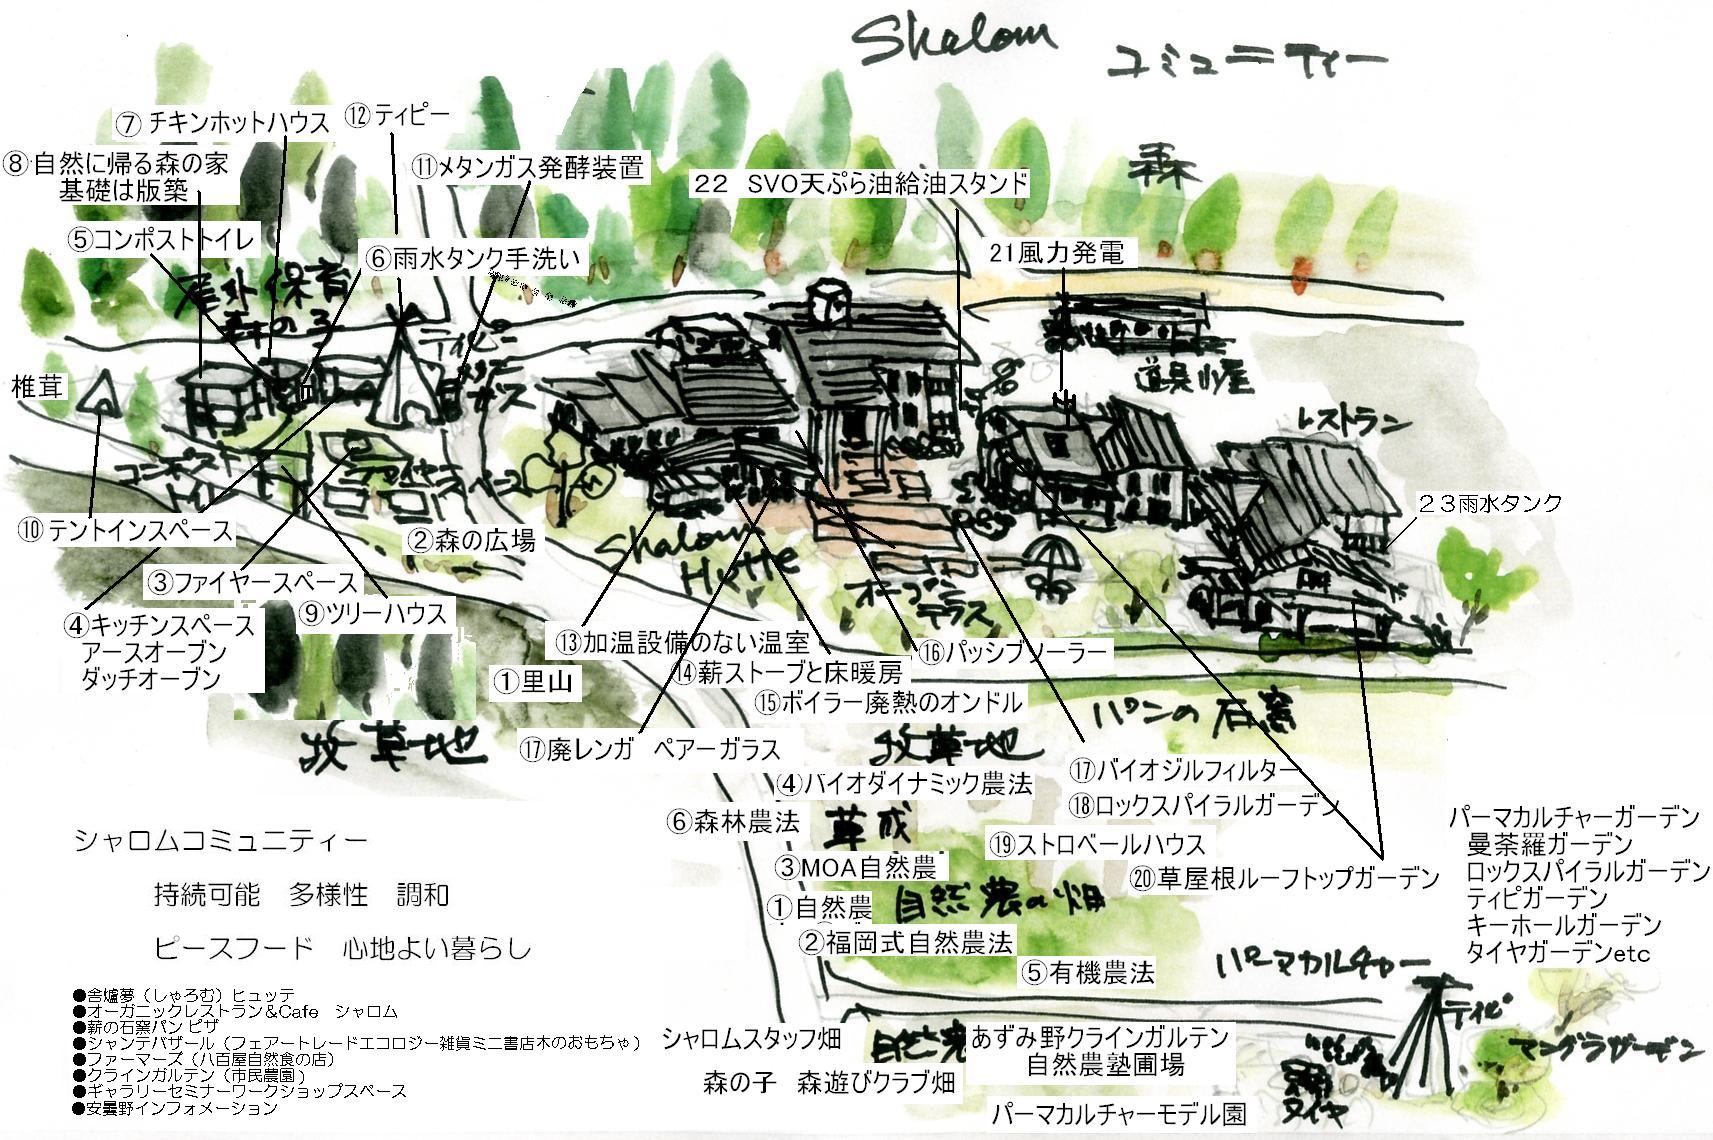 Shalom コミュニティー
⑦ チキンホットハウス
⑫ティピー
⑧自然に帰る森の家
基礎は版築
⑪メタンガス発酵装置
22 SVO天ぷら油給油スタンド
森
⑤コンポストトイレ
⑥雨水タンク手洗い
21風力発電
屋外保育
森の子
ティピー
メタンガス
道具小屋
椎茸
レストラン
コンポストトイレ
ファイヤースペース
⑩テントインスペース
②森の広場
Shalom
Hütte
オープンテラス
23雨水タンク
③ファイヤースペース
⑨ツリーハウス
④キッチンスペース
アースオーブン
ダッチオーブン
⑬加温設備のない温室
⑯パッシブソーラー
①里山
⑭薪ストーブと床暖房
⑮ボイラー廃熱のオンドル
パンの石窯
牧草地
⑰廃レンガ ペアーガラス
牧草地
⑰バイオジルフィルター
④バイオダイナミック農法
⑱ロックスパイラルガーデン
⑥森林農法
⑲ストロベールハウス
③MOA自然農
⑳草屋根ルーフトップガーデン
①自然農
自然農の畑
②福岡式自然農法
⑤有機農法
パーマカルチャーガーデン
曼荼羅ガーデン
ロックスパイラルガーデン
ティピガーデン
キーホールガーデン
タイヤガーデンetc
シャロムコミュニティー
持続可能 多様性 調和
ピースフード 心地よい暮らし
●舎爐夢（しゃろむ）ヒュッテ
●オーガニックレストラン＆Cafe シャロム
●薪の石窯パン ピザ
●シャンテバザール（フェアートレードエコロジー雑貨ミニ書店木のおもちゃ）
●ファーマーズ（八百屋自然食の店）
●クラインガルテン（市民農園）
●ギャラリーセミナーワークショップスペース
●安曇野インフォメーション
パーマカルチャー
ティピ
マンダラガーデン
タイヤ
シャロムスタッフ畑
あずみ野クラインガルテン
自然農塾圃場
森の子 森遊びクラブ畑
パーマカルチャーモデル園